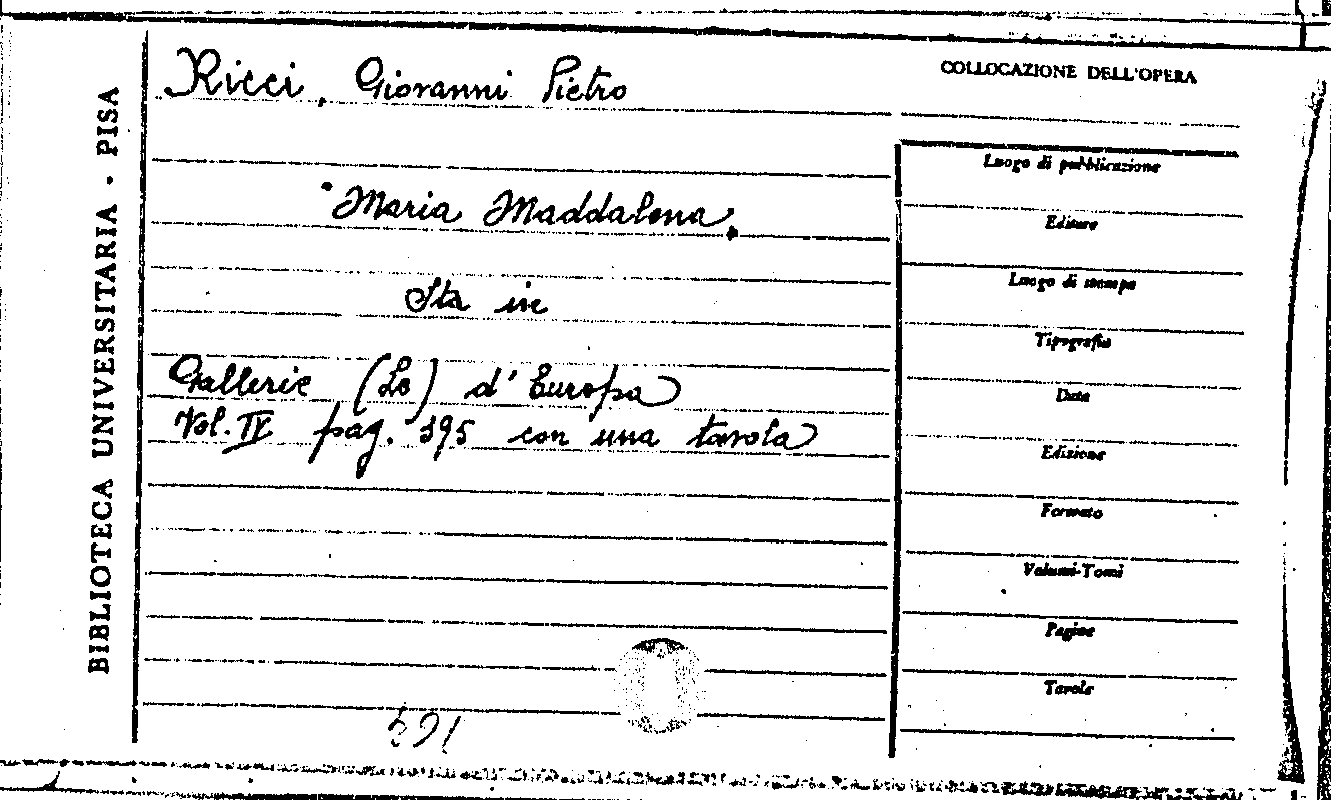 BIBLIOTECA UNIVERSITARIA - PISA
Ricci, Giovanni Pietro
COLLOCAZIONE DELL'OPERA
Luogo di pubblicazione
Maria Maddalena.
Editore
Sta in
Luogo di stampa
Tipografia
Gallerie (Le) d'Europa
Data
Vol. IV pag. 395 con una tavola
Edizione
Formato
Volumi-Tomi
Pagine
Tavole